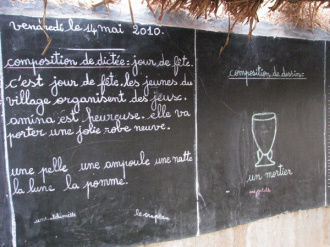 vendredi le 14 mai 2010.
composition de dictée: jour de fête.
c'est jour de fête. les jeunes du
village organisent des jeux.
amina est heureuse. elle va
porter une jolie robe neuve.
une pelle une ampoule une natte
la lune la pomme.
composition de dessin:
un mortier